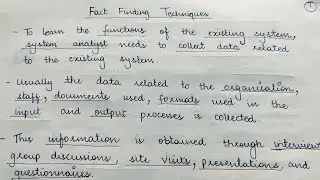 1
Fact Finding Techniques
- To learn the functions of the existing system,
system analyst needs to collect data related
to the existing system.
- Usually the data related to the organisation,
staff, documents used, formats used in the
input and output processes is collected.
- This information is obtained through interview
group discussions, site visits, presentations, and
questionnaires.